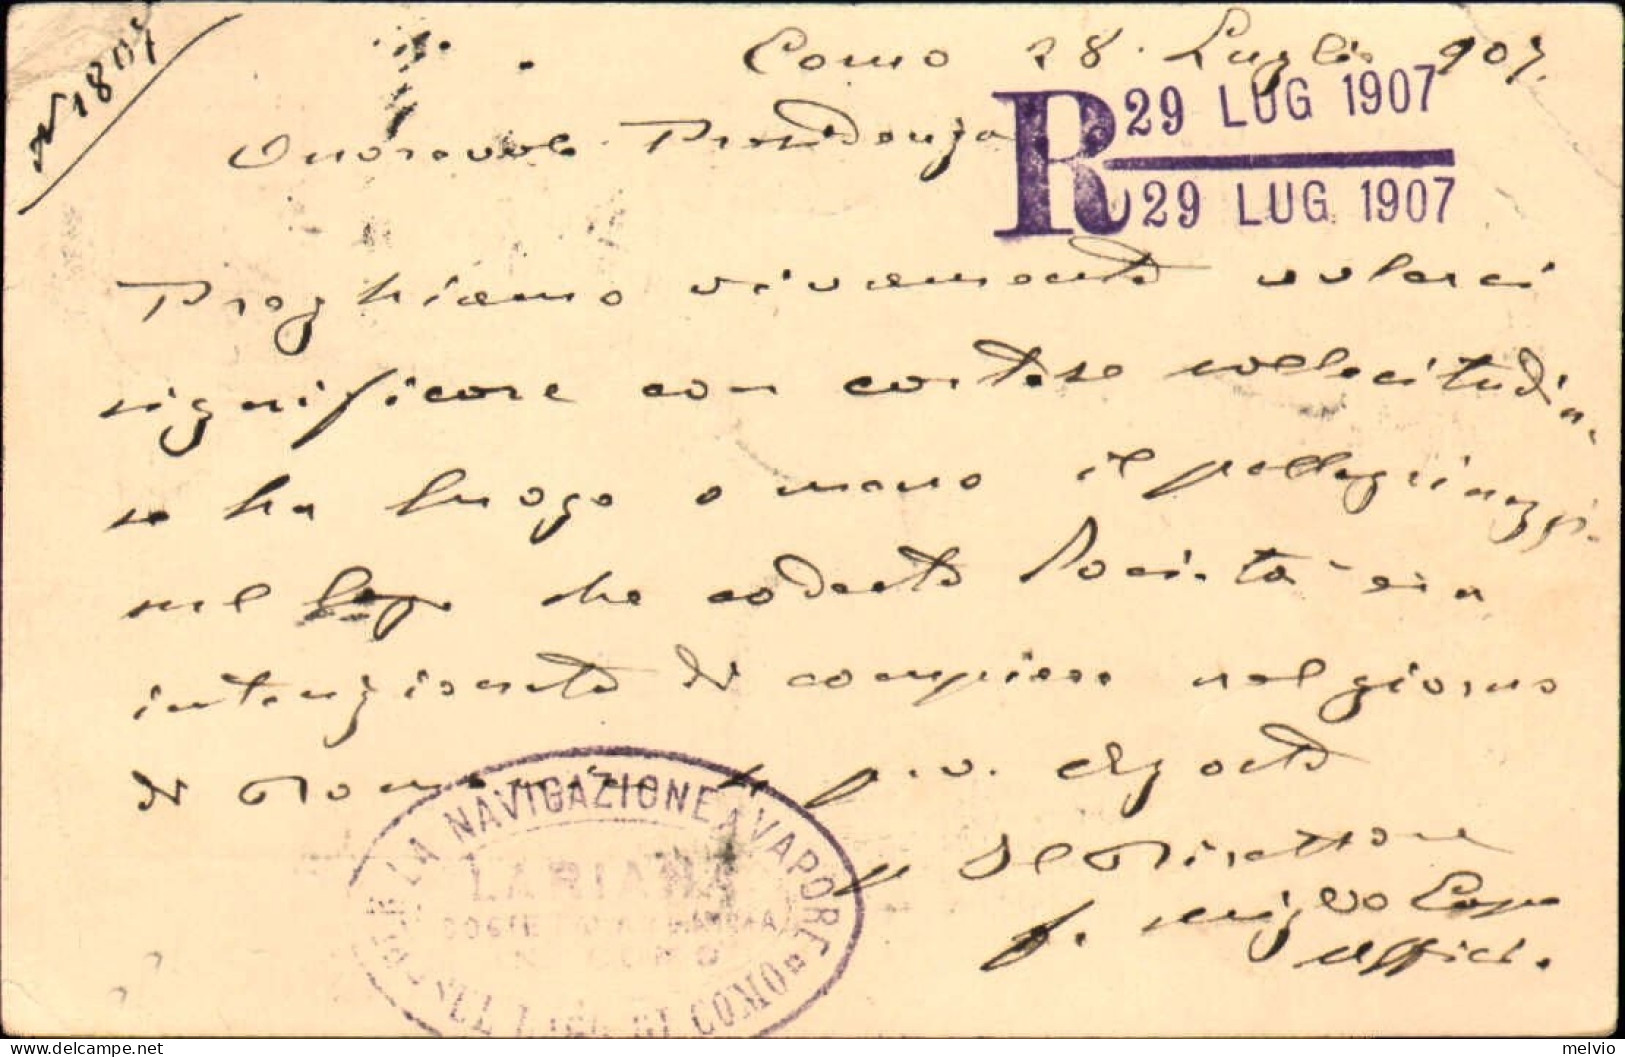 N 1807
Como 28 Luglio 907.
Onorevole Presidenza
R 29 LUG 1907
29 LUG 1907
Preghiamo vivamente volerci
significare con cortese sollecitudin.
se ha luogo o meno il pellegrinaggi.
sul lago che codesta Società era
intenzionata di compiere nel giorno
di Domenica 4 p. v. Agosto
Il Direttore
f.
Uffici.
PER LA NAVIGAZIONE A VAPORE
LARIANA
SUL LAGO DI COMO
delcampe.net
melvio